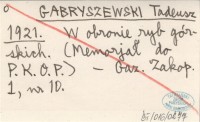 o GABRYSZEWSKI Tadeusz
1921. W obronie ryb gór-
skich. (Memorjał do
P.K.O.P.) — Gaz. Zakop.
1, nr 10.